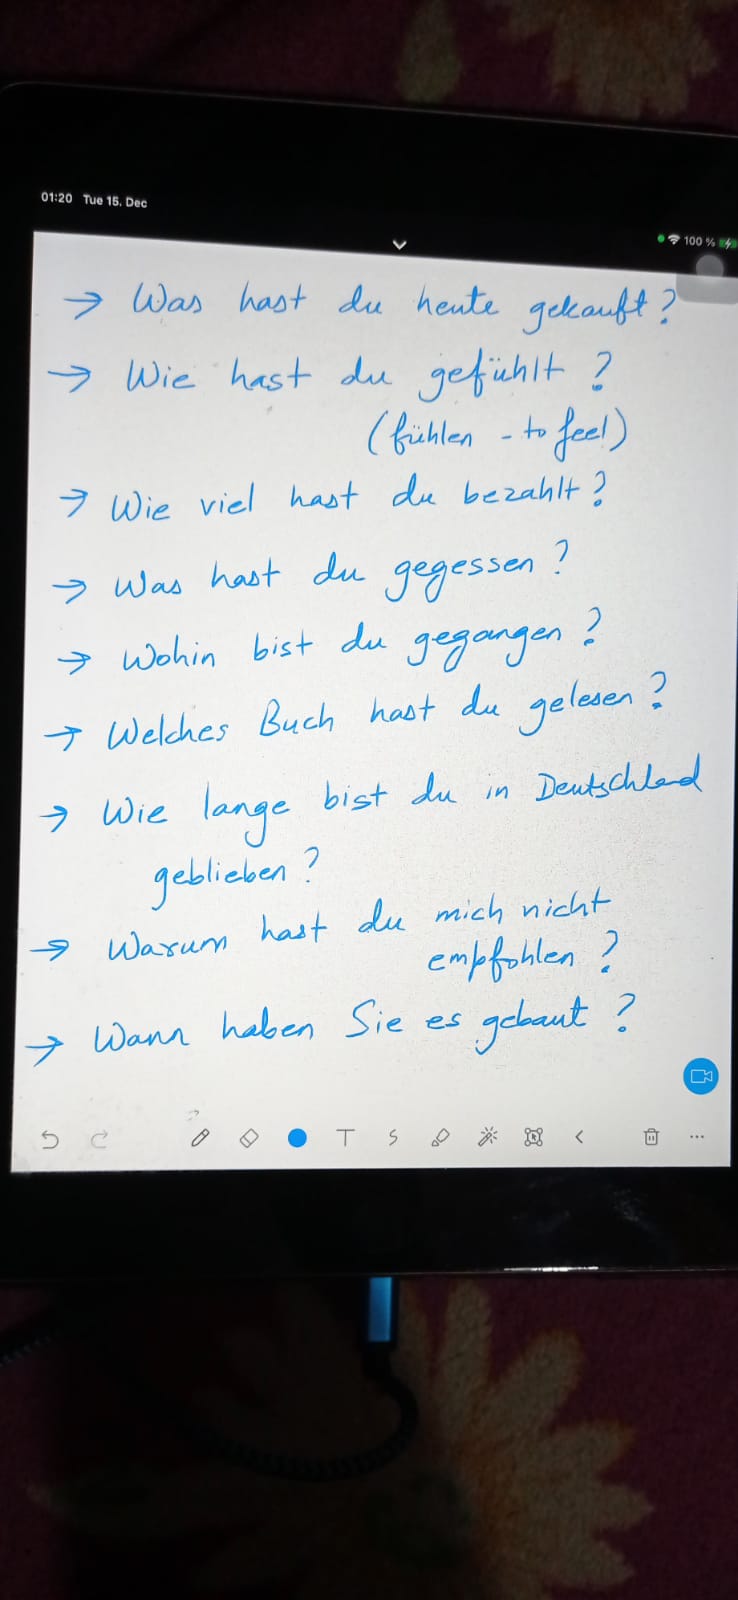 01:20 Tue 15. Dec
100 %
→ Was hast du heute gekauft?
→ Wie hast du gefühlt ?
(fühlen - to feel)
→ Wie viel hast du bezahlt?
→ Was hast du gegessen ?
→ Wohin bist du gegangen ?
→ Welches Buch hast du gelesen ?
→ Wie lange bist du in Deutschland
geblieben ?
→ Warum hast du mich nicht
empfohlen ?
→ Wann haben Sie es gebaut ?
T